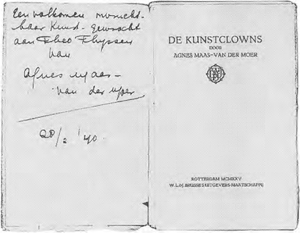 Een volkomen
haar Kunst-
aan Theo Thijssen
van
Agnes Maas-
van der Moer
20/2 '40
DE KUNSTCLOWNS
DOOR
AGNES MAAS-VAN DER MOER
ROTTERDAM MCMXXV
W. L. & J. BRUSSE'S UITGEVERS-MAATSCHAPPIJ